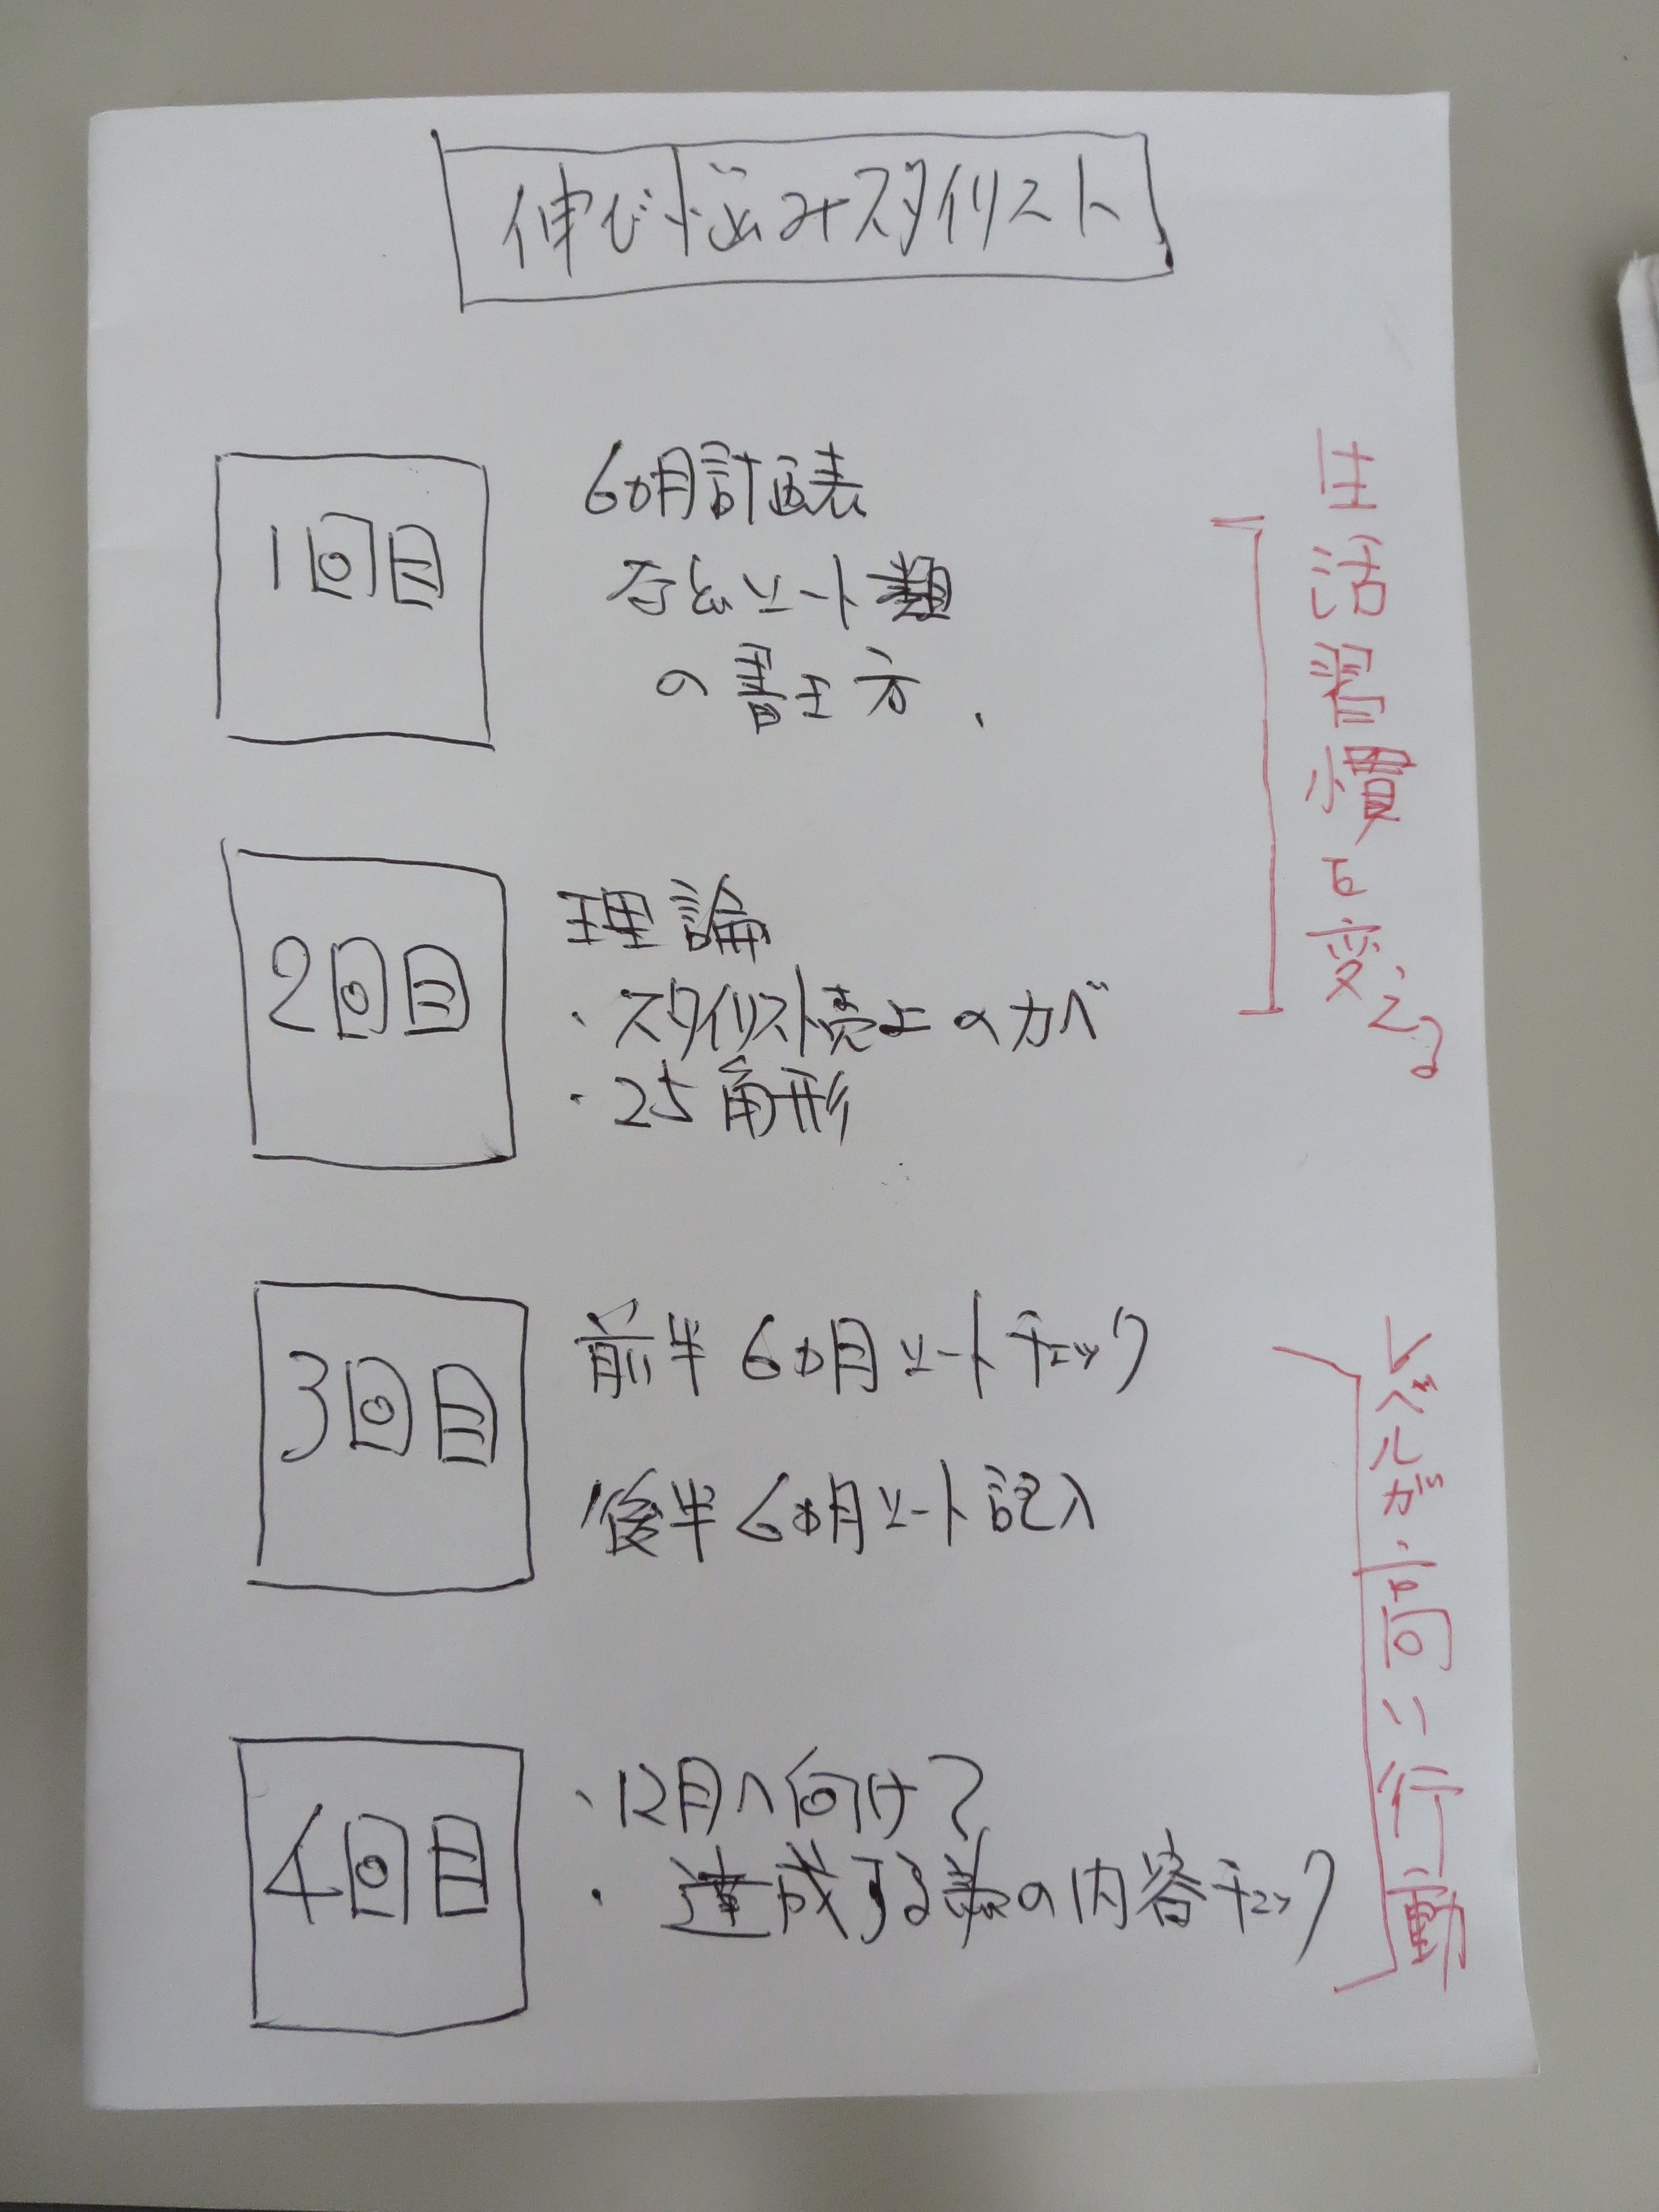 伸び悩みスタイリスト
1回目
6カ月計画表
シート類
の書き方
2回目
理論
・スタイリスト売上のカベ
・25角形
3回目
前半6カ月シートチェック
後半6カ月シート記入
4回目
・12月へ向けて
・達成する為の内容チェック
生活習慣を変える
行動